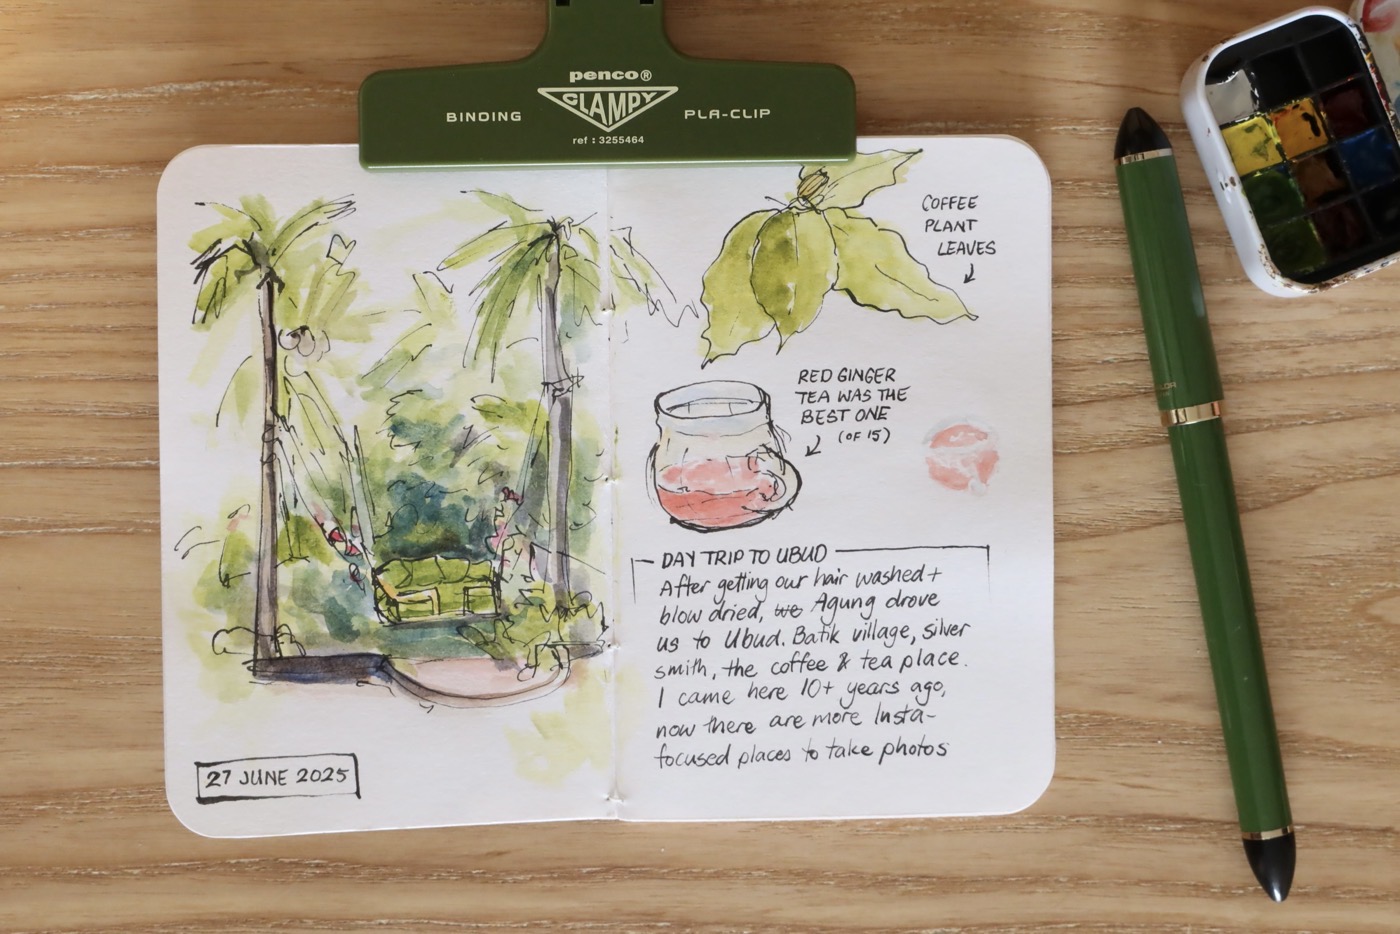 penco®
CLAMPY
BINDING
PLA-CLIP
ref : 3255464
COFFEE
PLANT
LEAVES
RED GINGER
TEA WAS THE
BEST ONE
(OF 15)
DAY TRIP TO UBUD
After getting our hair washed +
blow dried, we Agung drove
us to Ubud. Batik village, silver
smith, the coffee & tea place.
I came here 10+ years ago,
now there are more Insta-
focused places to take photos
27 JUNE 2025